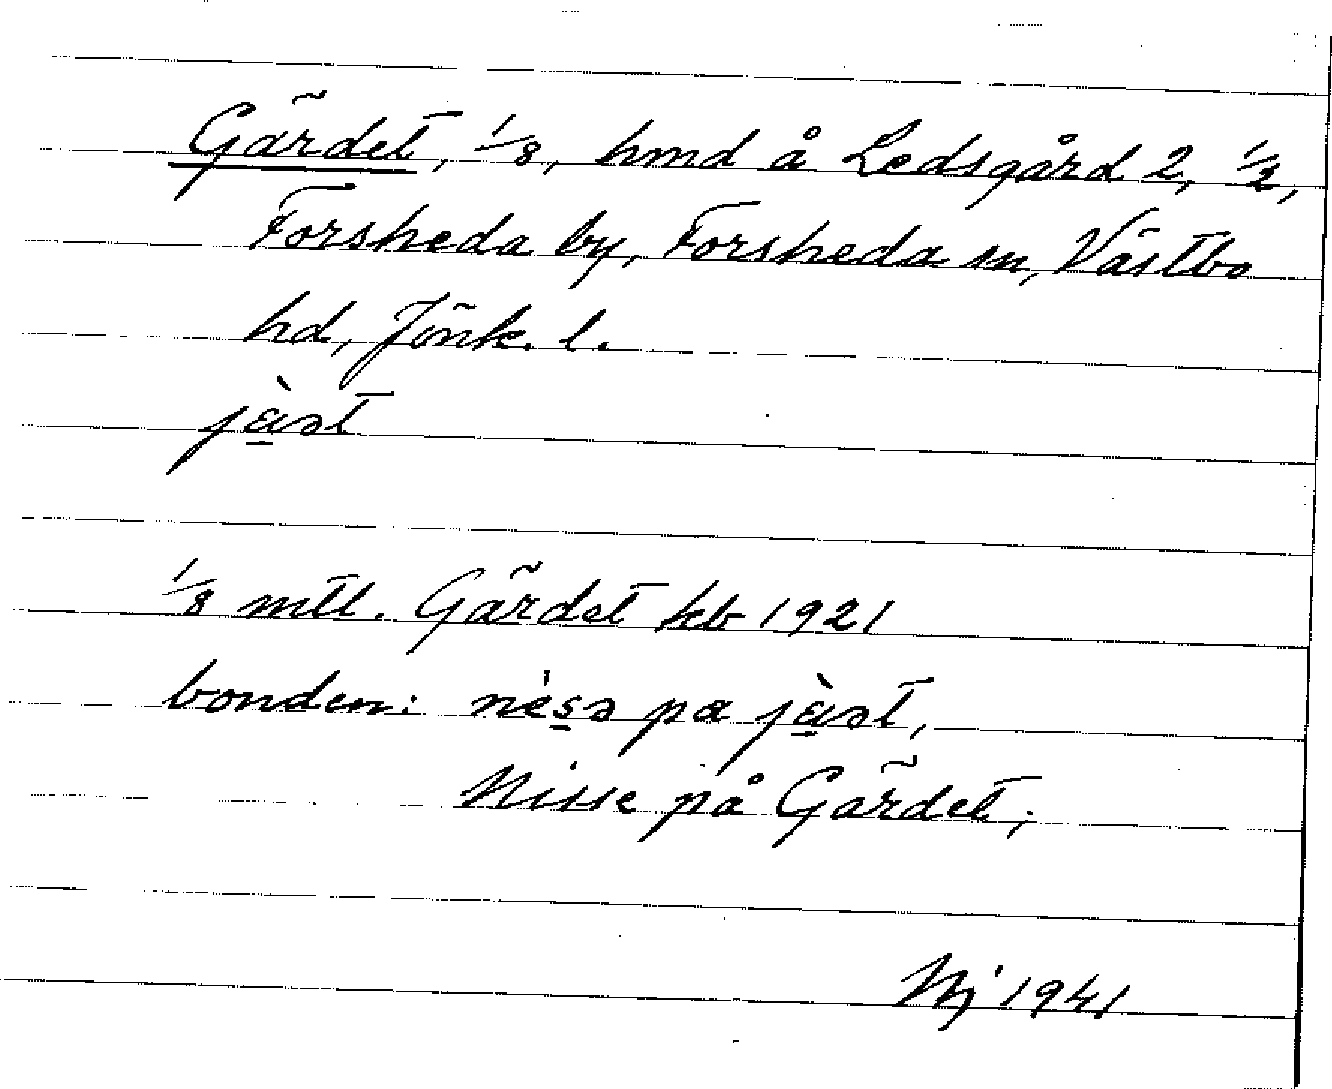 Gärdet, 1/8, hmd å Ledsgård 2, 1/2,
Forsheda by, Forsheda sn, Västbo
hd, Jönk. l.
jὲ̱ət
1/8 mtl. Gärdet kb 1921
bonden: nésə pα jὲ̱ət,
Nisse på Gärdet;
Nj 1941